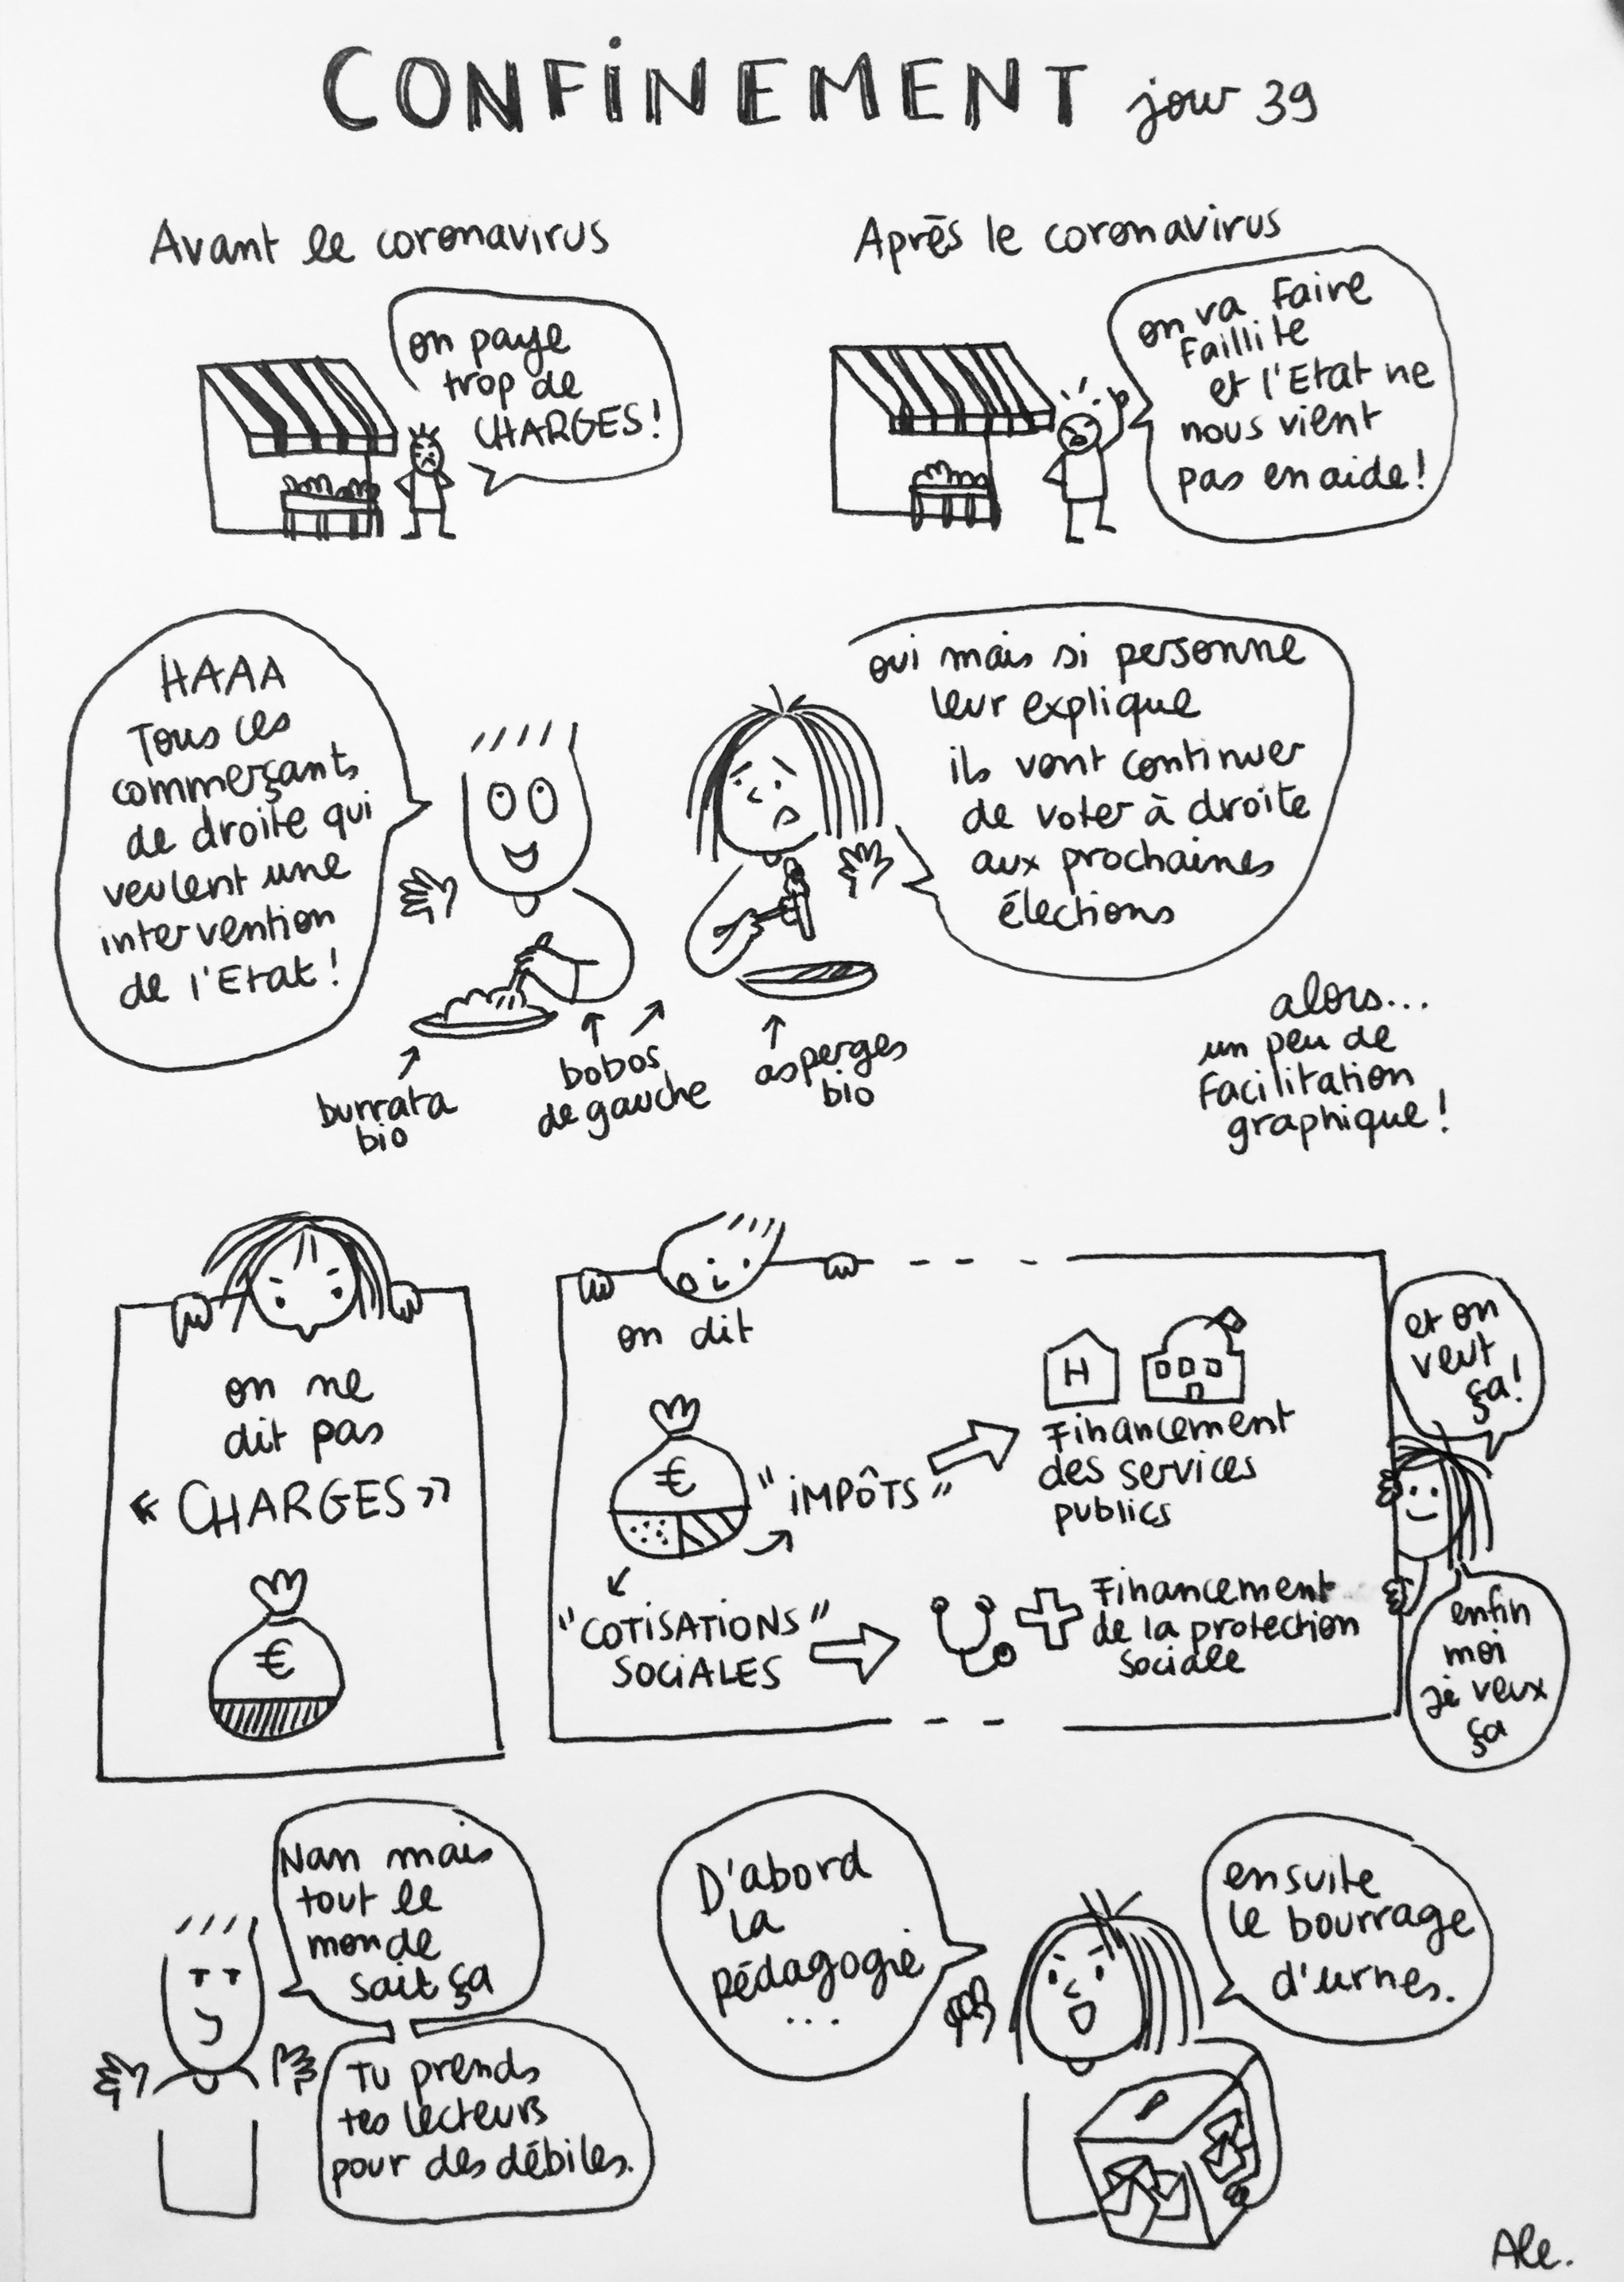 CONFINEMENT jour 39
Avant le coronavirus
on paye
trop de
CHARGES!
Après le coronavirus
on va faire
faillite
et l'Etat ne
nous vient
pas en aide!
HAAA
Tous ces
commerçants
de droite qui
veulent une
intervention
de l'Etat!
oui mais si personne
leur explique
ils vont continuer
de voter à droite
aux prochaines
élections
burrata
bio
bobos
de gauche
asperges
bio
alors...
un peu de
facilitation
graphique!
on ne
dit pas
« CHARGES »
€
on dit
€
"IMPÔTS"
H
Financement
des services
publics
"COTISATIONS"
SOCIALES
Financement
de la protection
sociale
et on
veut
ça!
enfin
moi
je veux
ça
Nan mais
tout le
monde
sait ça
Tu prends
tes lecteurs
pour des débiles.
D'abord
la
pédagogie
...
ensuite
le bourrage
d'urnes.
Ale.